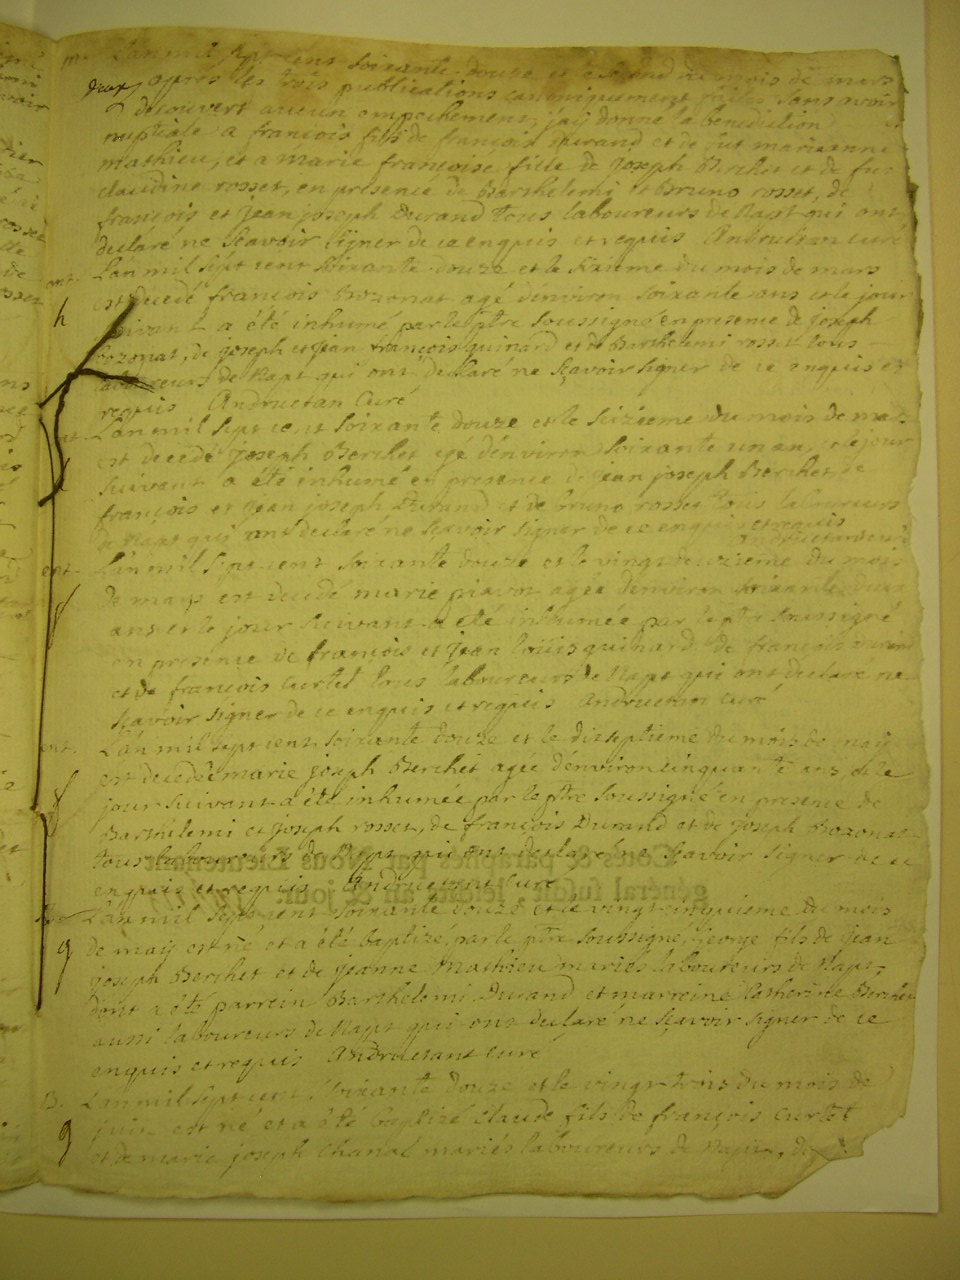 m. L'an mil sept cent soixante douze et le second du mois de mars
deux après les trois publications canoniquement faites sans avoir
decouvert aucun empechement, j'ai donné la benediction
nuptiale a françois fils de françois Durand et de fut marianne
mathieu, et a marie françoise fille de joseph Berchet et de fue
claudine rosset, en présence de Barthelemi et Bruno rosset, de
françois et jean joseph Durand tous laboureurs de Napt qui ont
declaré ne sçavoir signer de ce enquis et requis Andruetan curé
ent. L'an mil sept cent soixante douze et le sixieme du mois de mars
h est decedé françois Bozonat agé d'environ soixante ans et le jour
suivant a été inhumé par le ptre soussigné en presence de joseph
Bozonat, de joseph et jean françois guinard et de Barthelemi rosset tous
laboureurs de Napt qui ont declaré ne sçavoir signer de ce enquis et
requis Andruetan Curé
ent. L'an mil sept cent soixante douze et le seizieme du mois de mars
est decedé joseph Berchet agé d'environ soixante un an, et le jour
suivant a été inhumé en presence de jean joseph Berchet, de
françois et jean joseph Durand et de bruno rosset tous laboureurs
de Napt qui ont declaré ne sçavoir signer de ce enquis et requis
Andruetan curé
ent. L'an mil sept cent soixante douze et le vingt deuxieme du mois
de mars est decedé marie agée d'environ soixante deux
ans et le jour suivant a été inhumée par le ptre soussigné
en presence de françois et jean loüis guinard de françois Durand
et de françois curtet tous laboureurs de Napt qui ont declaré ne
sçavoir signer de ce enquis et requis Andruetan curé
ent. L'an mil sept cent soixante douze et le dixseptieme du mois de maÿ
est decedée marie joseph Berchet agée d'environ cinquante ans et le
jour suivant a été inhumée par le ptre soussigné en presence de
Barthelemi et joseph rosset, de françois Durand et de joseph Bozonat
tous laboureurs de Napt qui ont declaré ne sçavoir signer de ce
enquis et requis Andruetan curé
Cottés & paraphés par Nous Lieutenant
général susdit, lesdits an & jour.
L'an mil sept cent soixante douze et le vingt cinquieme du mois
de maÿ est né et a été baptizé par le ptre soussigné, george fils de jean
joseph Berchet et de jeanne Mathieu mariés laboureurs de Napt,
dont a été parrein Barthelemi Durand et marreine Catherine Berchet
aussi laboureurs de Napt qui ont declaré ne sçavoir signer de ce
enquis et requis Andruetant curé
B. L'an mil sept cent soixante douze et le vingt trois du mois de
g juin est né et a été baptizé claude fils de françois curtet
et de marie joseph Chanal mariés laboureurs de Napt, de